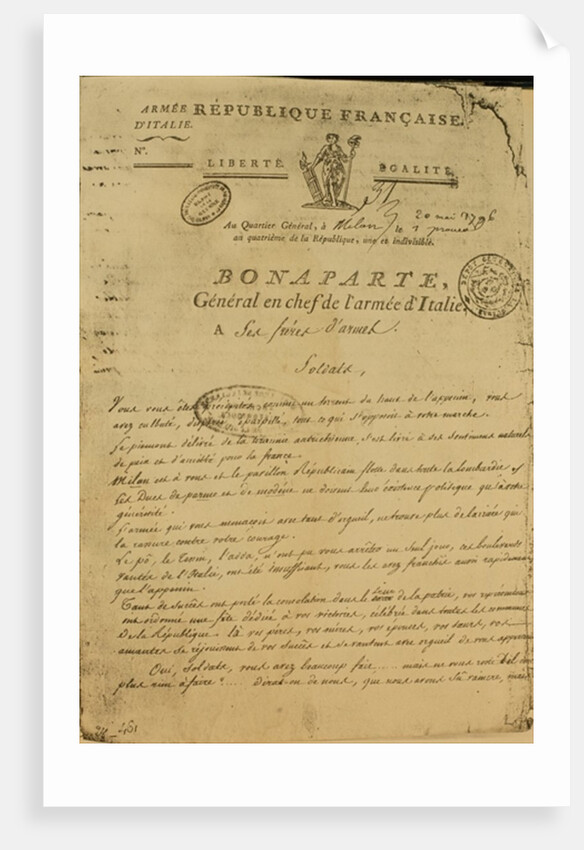 ARMÉE RÉPUBLIQUE FRANÇAISE.
D'ITALIE.
N°.
LIBERTÉ. EGALITÉ.
20 mai 1796
Au Quartier Général, à Milan le 1 prairial
au quatrième de la République, une et indivisible.
BONAPARTE,
Général en chef de l'armée d'Italie,
A Ses frères d'armes.
Soldats,
Vous vous êtes précipités comme un torrent du haut de l'appenin, vous
avez culbuté, dispersé, éparpillé, tout ce qui s'opposoit à votre marche.
Le piemont délivré de la tirannie autrichienne s'est livré à ses sentimens naturels
de paix et d'amitié pour la france.
Milan est à vous et le pavillon Républicain flotte dans toute la Lombardie
Les Ducs de parme et de modène ne doivent leur existence politique qu'à votre
générosité.
L'armée qui vous menaçoit avec tant d'orgueil, ne trouve plus de barrière qui
la rassure contre votre courage.
Le pô, le Tessin, l'adda, n'ont pu vous arrêter un seul jour, ces boulevards
vantés de l'Italie, ont été insuffisant, vous les avez franchis aussi rapidement
que l'appenin.
Tant de succès ont porté la consolation dans le sein de la patrie, vos représentans
ont ordonné une fête dédiée à vos victoires, célébrée dans toutes les communes
De la République. là vos pères, vos mères, vos épouses, vos sœurs, vos
amantes se réjouissent de vos succès et se vantent avec orgueil de vous appartenir
Oui, soldats, vous avez beaucoup fait.... mais ne vous reste t'il
plus rien à faire?.... Dira-t-on de nous, que nous avons sû vaincre, mais